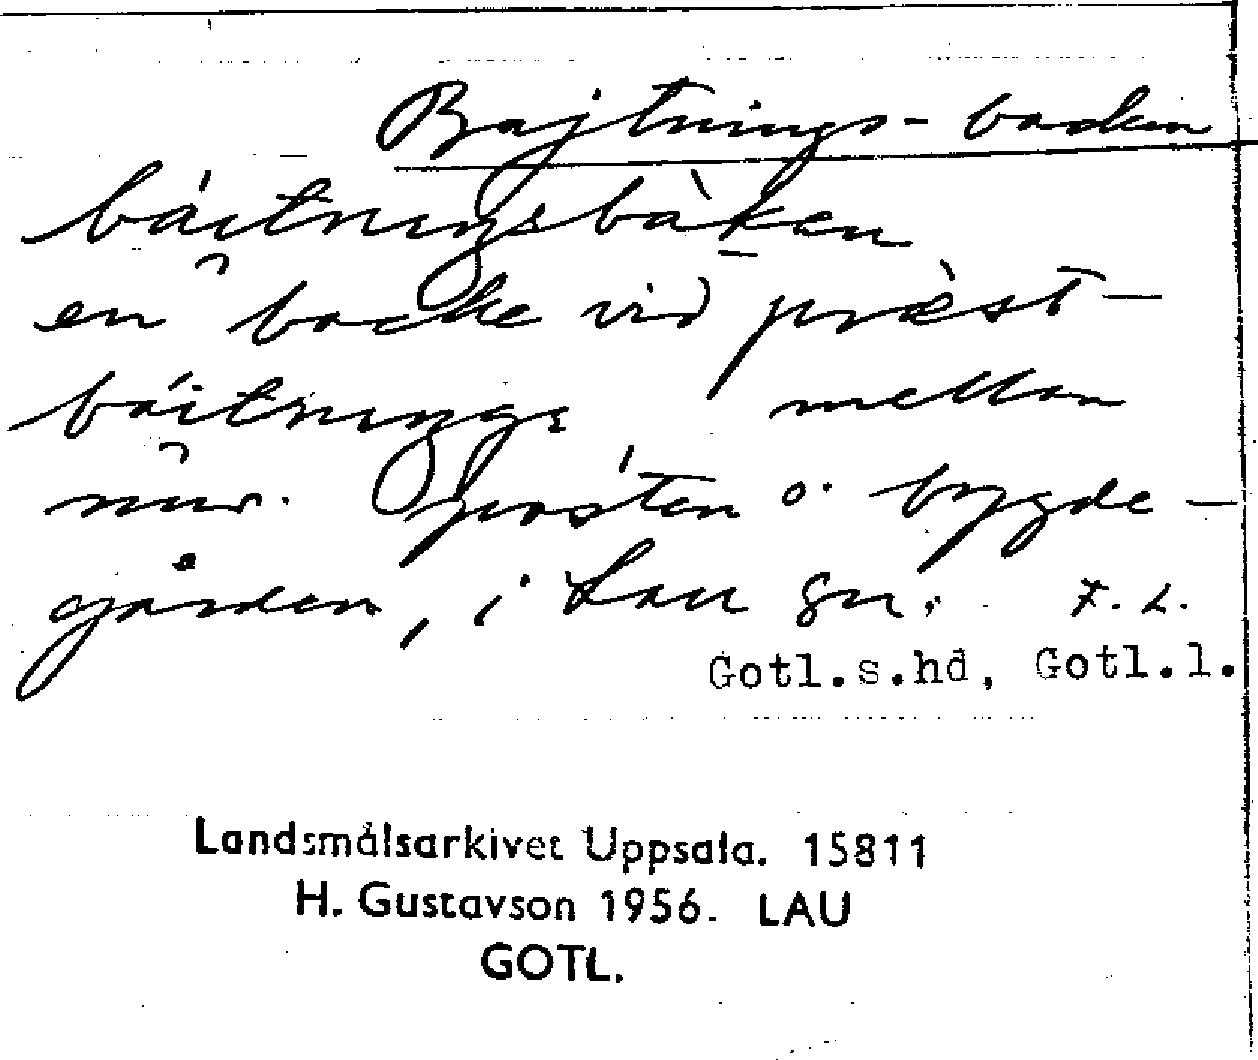 Bajtnings-backen
báitningsbàken
en backe vid prèst-
báitninge mellan
nuv. pósten o. bygde-
gården, i Lau sn. F. L.
Gotl.s.hd, Gotl.l.
Landsmålsarkivet Uppsala. 15811
H. Gustavson 1956. LAU
GOTL.